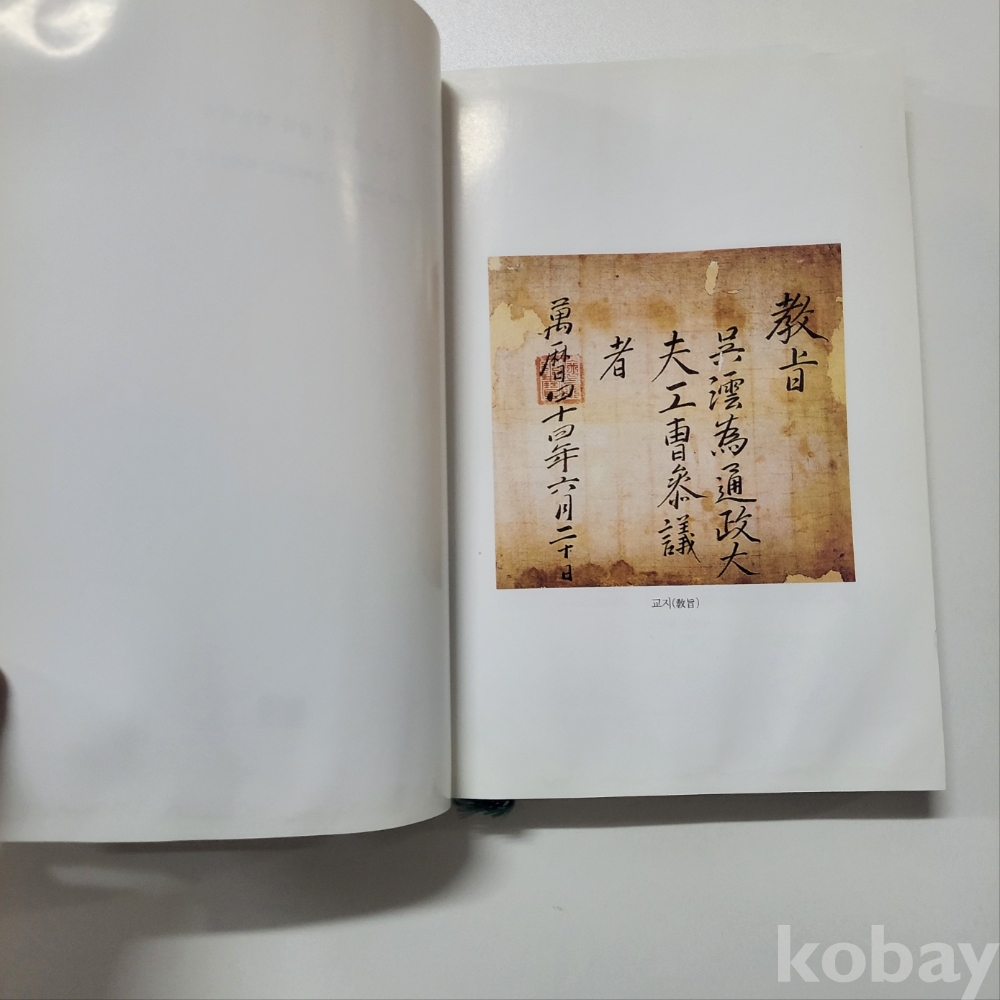 教旨
吳澐為通政大
夫工曹參議
者
萬曆四十四年六月二十日
교지(敎旨)
kobay